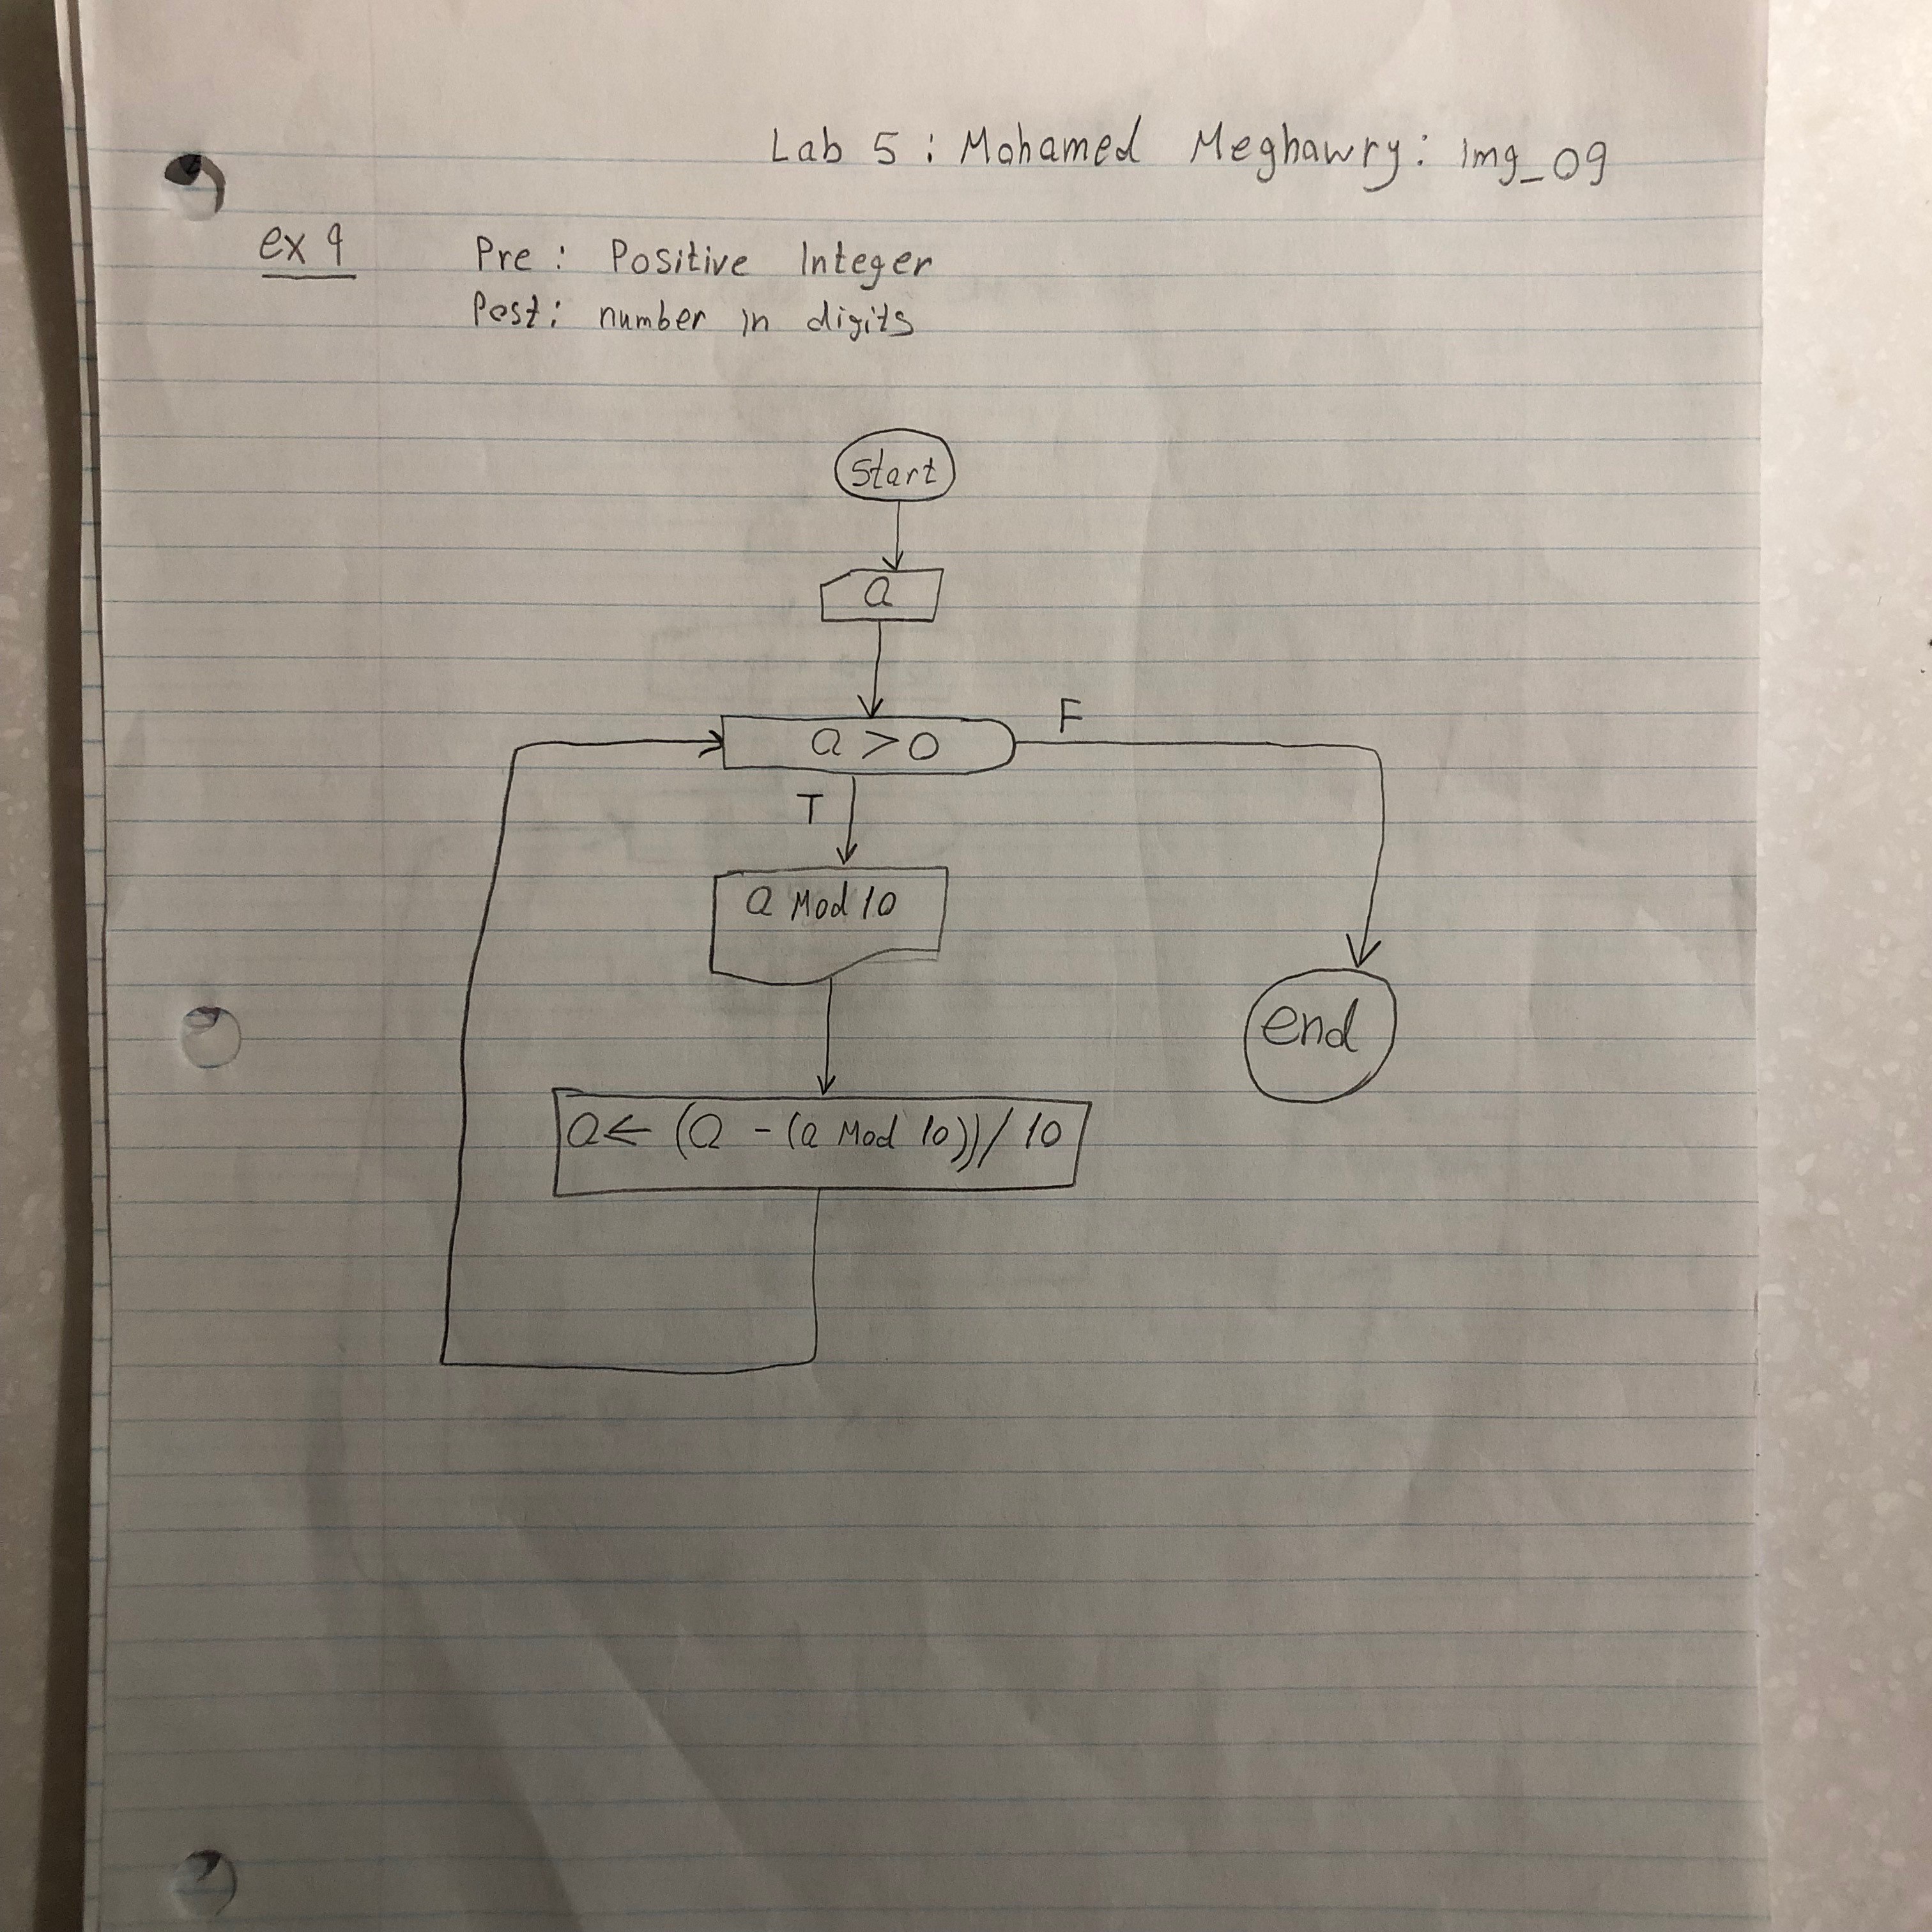 Lab 5 : Mohamed Meghawry: img_09
ex 9
Pre : Positive Integer
Post: number in digits
Start
a
a > 0
F
T
a Mod 10
end
a ← (a - (a Mod 10)) / 10